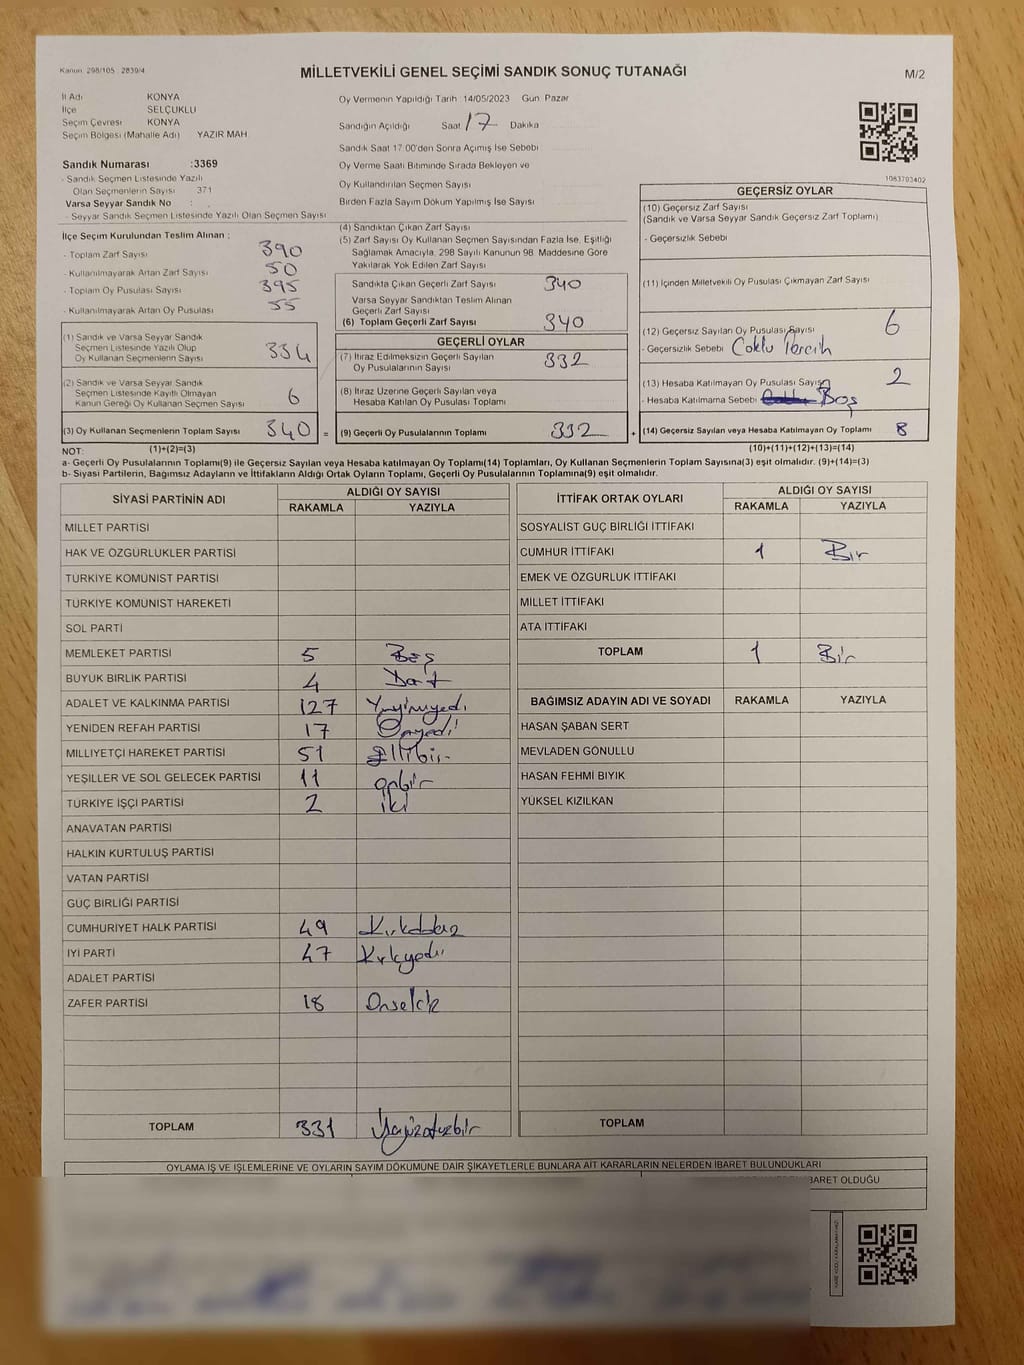 Kanun: 298/105 : 2839/4
MİLLETVEKİLİ GENEL SEÇİMİ SANDIK SONUÇ TUTANAĞI
M/2
İl Adı KONYA
İlçe SELÇUKLU
Seçim Çevresi KONYA
Seçim Bölgesi (Mahalle Adı) YAZIR MAH.
Oy Vermenin Yapıldığı Tarih 14/05/2023 Gün Pazar
Sandığın Açıldığı Saat 17 Dakika
Sandık Saat 17:00'den Sonra Açımış İse Sebebi
Oy Verme Saati Bitiminde Sırada Bekleyen ve
Oy Kullandırılan Seçmen Sayısı
Birden Fazla Sayım Döküm Yapılmış İse Sayısı
1083703402
Sandık Numarası :3369
- Sandık Seçmen Listesinde Yazılı
Olan Seçmenlerin Sayısı 371
Varsa Seyyar Sandık No :
- Seyyar Sandık Seçmen Listesinde Yazılı Olan Seçmen Sayısı
İlçe Seçim Kurulundan Teslim Alınan :
- Toplam Zarf Sayısı 390
- Kullanılmayarak Artan Zarf Sayısı 50
- Toplam Oy Pusulası Sayısı 395
- Kullanılmayarak Artan Oy Pusulası 55
(1) Sandık ve Varsa Seyyar Sandık
Seçmen Listesinde Yazılı Olup
Oy Kullanan Seçmenlerin Sayısı 334
(2) Sandık ve Varsa Seyyar Sandık
Seçmen Listesinde Kayıtlı Olmayan
Kanun Gereği Oy Kullanan Seçmen Sayısı 6
(3) Oy Kullanan Seçmenlerin Toplam Sayısı 340 =
(4) Sandıktan Çıkan Zarf Sayısı
(5) Zarf Sayısı Oy Kullanan Seçmen Sayısından Fazla İse, Eşitliği
Sağlamak Amacıyla, 298 Sayılı Kanunun 98. Maddesine Göre
Yakılarak Yok Edilen Zarf Sayısı
Sandıkta Çıkan Geçerli Zarf Sayısı 340
Varsa Seyyar Sandıktan Teslim Alınan
Geçerli Zarf Sayısı
(6) Toplam Geçerli Zarf Sayısı 340
GEÇERLİ OYLAR
(7) İtiraz Edilmeksizin Geçerli Sayılan
Oy Pusulalarının Sayısı 332
(8) İtiraz Üzerine Geçerli Sayılan veya
Hesaba Katılan Oy Pusulası Toplamı
(9) Geçerli Oy Pusulalarının Toplamı 332 +
GEÇERSİZ OYLAR
(10) Geçersiz Zarf Sayısı
(Sandık ve Varsa Seyyar Sandık Geçersiz Zarf Toplamı)
- Geçersizlik Sebebi
(11) İçinden Milletvekili Oy Pusulası Çıkmayan Zarf Sayısı
(12) Geçersiz Sayılan Oy Pusulası Sayısı 6
- Geçersizlik Sebebi Çoklu Tercih
(13) Hesaba Katılmayan Oy Pusulası Sayısı 2
- Hesaba Katılmama Sebebi Boş
(14) Geçersiz Sayılan veya Hesaba Katılmayan Oy Toplamı 8
NOT: (1)+(2)=(3) (10)+(11)+(12)+(13)=(14)
a- Geçerli Oy Pusulalarının Toplamı(9) ile Geçersiz Sayılan veya Hesaba katılmayan Oy Toplamı(14) Toplamları, Oy Kullanan Seçmenlerin Toplam Sayısına(3) eşit olmalıdır. (9)+(14)=(3)
b- Siyasi Partilerin, Bağımsız Adayların ve İttifakların Aldığı Ortak Oyların Toplamı, Geçerli Oy Pusulalarının Toplamına(9) eşit olmalıdır.
SİYASİ PARTİNİN ADI ALDIĞI OY SAYISI
RAKAMLA YAZIYLA
MİLLET PARTİSİ
HAK VE ÖZGÜRLÜKLER PARTİSİ
TÜRKİYE KOMÜNİST PARTİSİ
TÜRKİYE KOMÜNİST HAREKETİ
SOL PARTİ
MEMLEKET PARTİSİ 5 Beş
BÜYÜK BİRLİK PARTİSİ 4 Dört
ADALET VE KALKINMA PARTİSİ 127 Yüzyirmiyedi
YENİDEN REFAH PARTİSİ 17 Onyedi
MİLLİYETÇİ HAREKET PARTİSİ 51 Ellibir
YEŞİLLER VE SOL GELECEK PARTİSİ 11 onbir
TÜRKİYE İŞÇİ PARTİSİ 2 iki
ANAVATAN PARTİSİ
HALKIN KURTULUŞ PARTİSİ
VATAN PARTİSİ
GÜÇ BİRLİĞİ PARTİSİ
CUMHURİYET HALK PARTİSİ 49 Kırkdokuz
İYİ PARTİ 47 Kırkyedi
ADALET PARTİSİ
ZAFER PARTİSİ 18 Onsekiz
TOPLAM 331 Üçyüzotuzbir
İTTİFAK ORTAK OYLARI ALDIĞI OY SAYISI
RAKAMLA YAZIYLA
SOSYALİST GÜÇ BİRLİĞİ İTTİFAKI
CUMHUR İTTİFAKI 1 Bir
EMEK VE ÖZGÜRLÜK İTTİFAKI
MİLLET İTTİFAKI
ATA İTTİFAKI
TOPLAM 1 Bir
BAĞIMSIZ ADAYIN ADI VE SOYADI RAKAMLA YAZIYLA
HASAN ŞABAN SERT
MEVLADEN GÖNÜLLÜ
HASAN FEHMİ BIYIK
YÜKSEL KIZILKAN
TOPLAM
OYLAMA İŞ VE İŞLEMLERİNE VE OYLARIN SAYIM DÖKÜMÜNE DAİR ŞİKAYETLERLE BUNLARA AİT KARARLARIN NELERDEN İBARET BULUNDUKLARI
BARET OLDUĞU